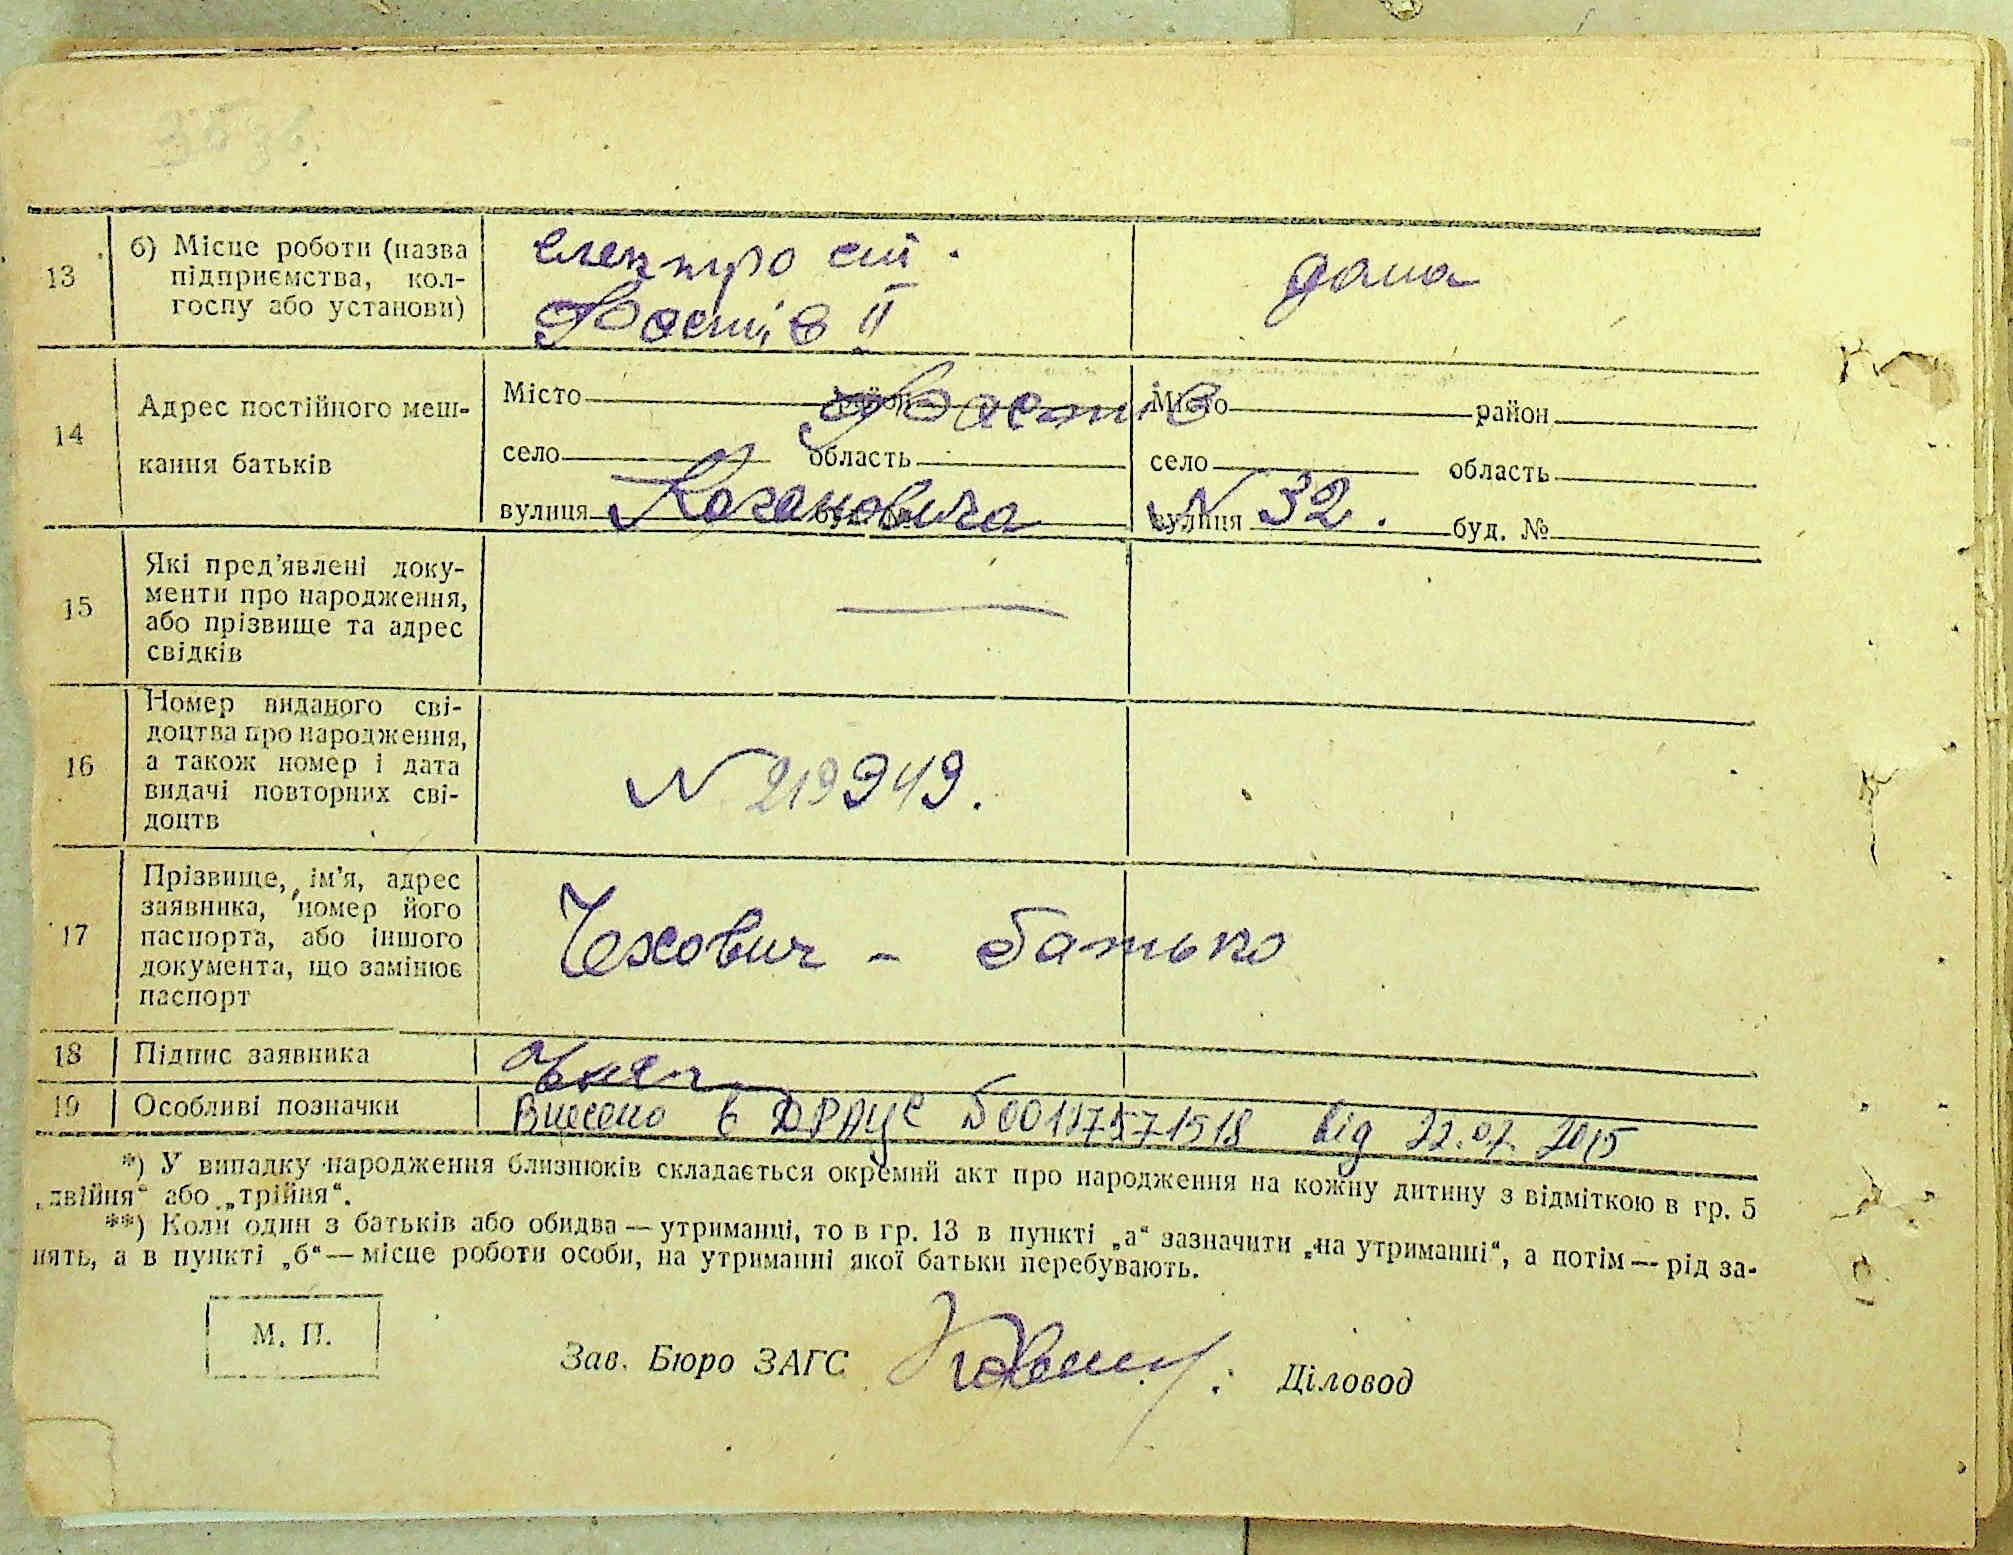 13
б) Місце роботи (назва
підприємства, кол-
госпу або установи)
електро
Фастів II
дома
14
Адрес постійного меш-
кання батьків
Місто Фастів Місто район
село область село область
вулиця Кагановича вулиця N 32. буд. №
15
Які пред'явлені доку-
менти про народження,
або прізвище та адрес
свідків
16
Номер виданого сві-
доцтва про народження,
а також номер і дата
видачі повторних сві-
доцтв
N 219949.
17
Прізвище, ім'я, адрес
заявника, номер його
паспорта, або іншого
документа, що замінює
паспорт
Чехович - батько
18 Підпис заявника
19 Особливі позначки
Внесено в ДРАЦС від 22.07.2015
*) У випадку народження близнюків складається окремий акт про народження на кожну дитину з відміткою в гр. 5
„двійня“ або „трійня“.
**) Коли один з батьків або обидва — утриманці, то в гр. 13 в пункті „а“ зазначити „на утриманні“, а потім — рід за-
нять, а в пункті „б“ — місце роботи особи, на утриманні якої батьки перебувають.
М. П.
Зав. Бюро ЗАГС
Діловод